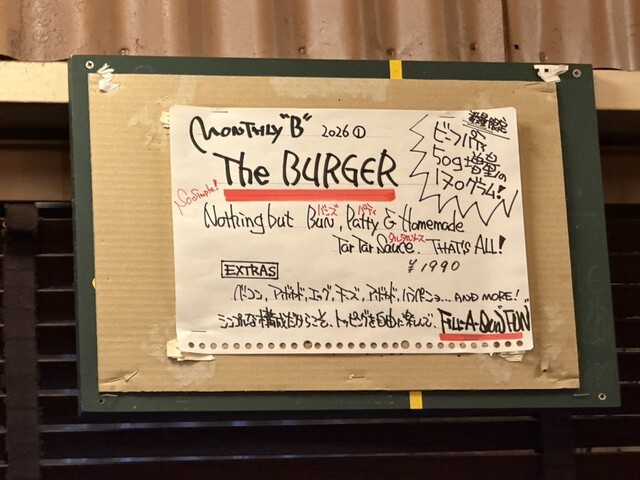 MONTHLY "B" 2026 ①
数量限定
ビーフパティ
50g増量の
170グラム!
The BURGER
So Simple!
Nothing but BUN バンズ, Patty パティ & Homemade
Tar Tar Sauce タルタルソース. THAT'S ALL!
¥1990
EXTRAS
ベーコン, アボカド, エッグ, チーズ, アボカド, ハラペーニョ...AND MORE!
シンプルな構成だからこそ、トッピングを自由に楽しんで、FILL-A-DEN "FUN"